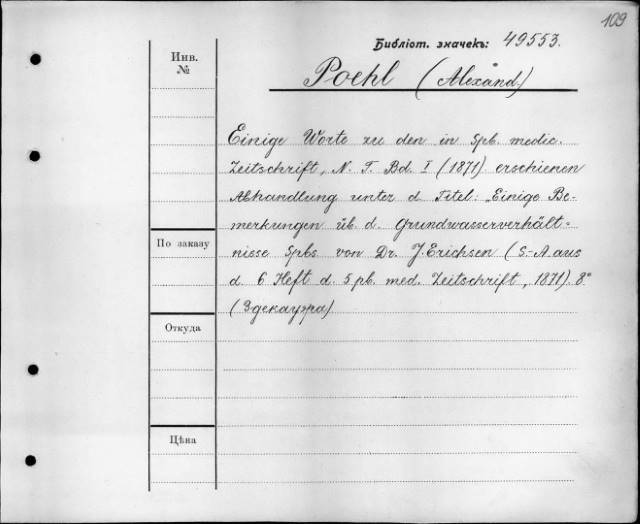 109
Библіот. значекъ: 49553.
Инв.
№
Poehl (Alexand.)
Einige Worte zu den in Spb. medic.
Zeitschrift, N. F. Bd. I (1871) erschienen
Abhandlung unter d Titel: „Einige Be-
merkungen üb. d. Grundwasserverhält-
nisse Spbs von Dr. J. Erichsen (S.-A. aus
d. 6 Heft d. Spb. med. Zeitschrift, 1871). 8°
(Здекауэра)
По заказу
Откуда
Цѣна